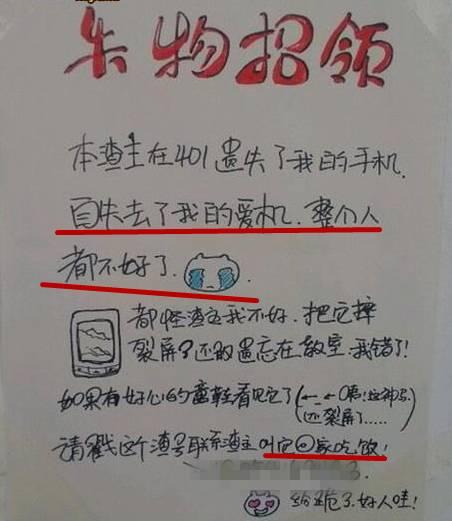 失物招领
本渣主在401遗失了我的手机.
自失去了我的爱机.整个人
都不好了.
都怪渣主我不好.把它摔
裂屏了还敢遗忘在教室.我错了!
如果有好心的童鞋看见它了(←_←
还裂屏了.....
请戳这个渣号联系渣主叫它回家吃饭!
给跪了.好人哇!